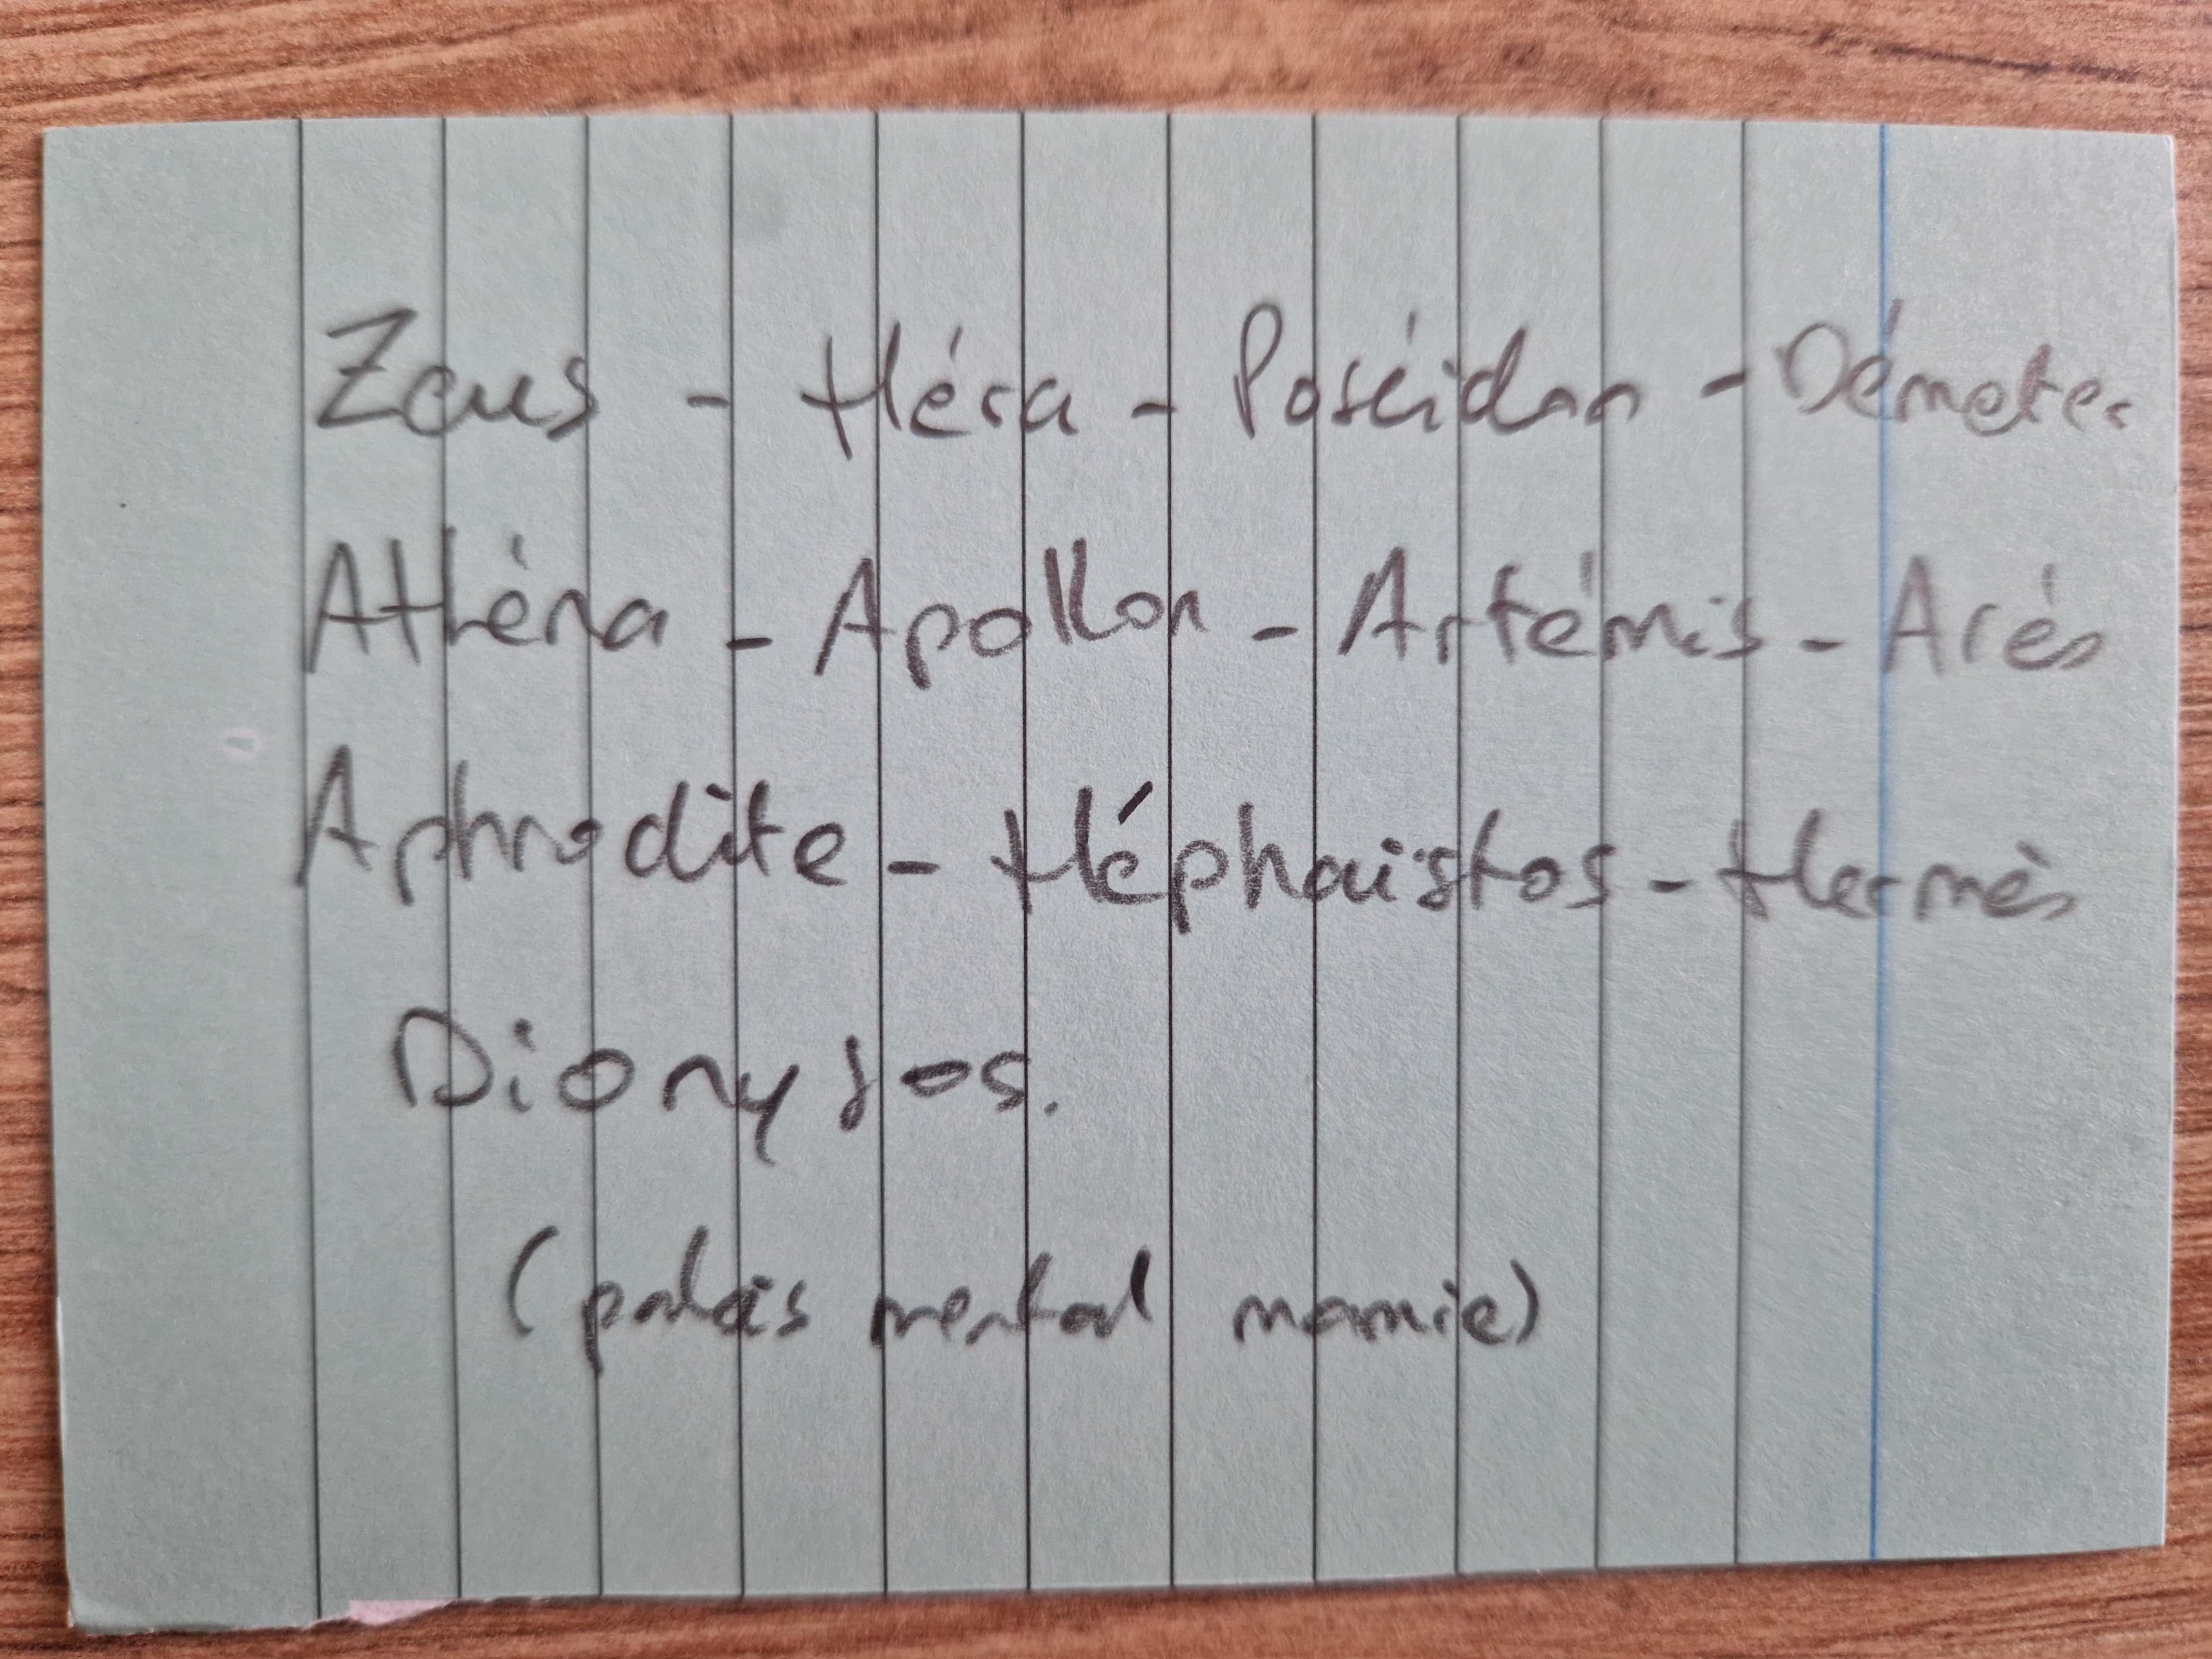 Zeus - Héra - Poséidon - Démeter
Athéna - Apollon - Artémis - Arés
Aphrodite - Héphaïstos - Hermès
Dionysos.
(palais mental mamie)